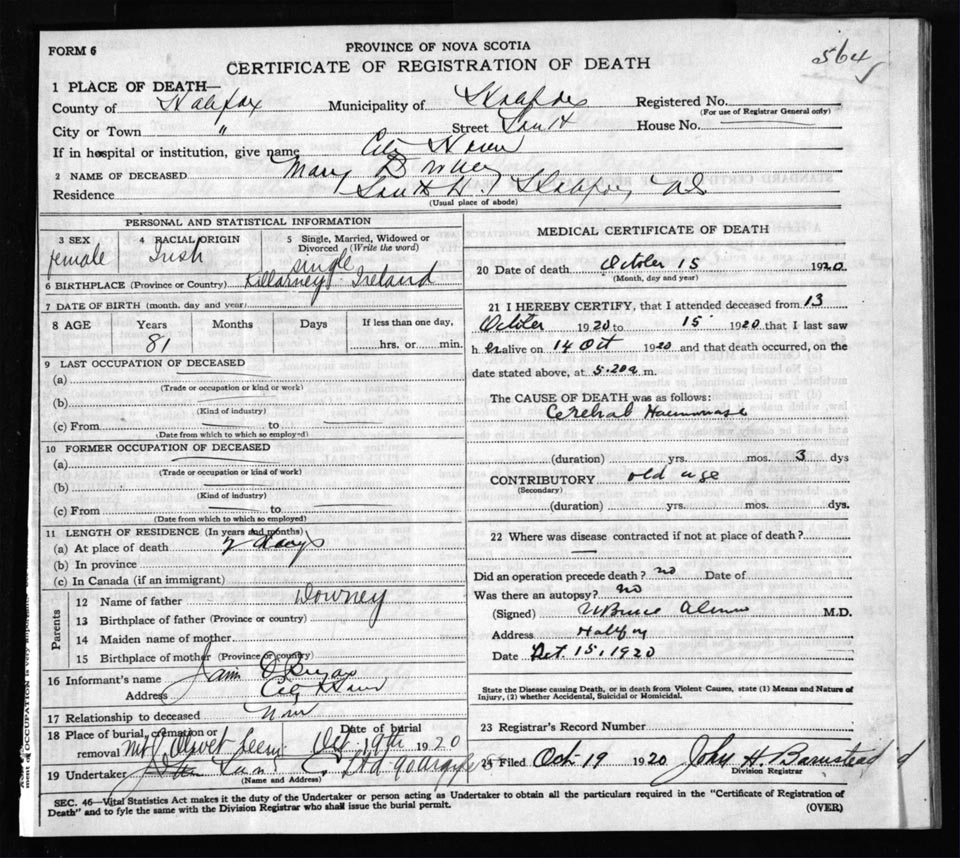 FORM 6
PROVINCE OF NOVA SCOTIA
564
CERTIFICATE OF REGISTRATION OF DEATH
1 PLACE OF DEATH—
County of Halifax Municipality of Halifax Registered No.
(For use of Registrar General only)
City or Town " Street South House No.
If in hospital or institution, give name City Home
2 NAME OF DECEASED Mary Downey
Residence South St Halifax, NS
(Usual place of abode)
PERSONAL AND STATISTICAL INFORMATION
3 SEX 4 RACIAL ORIGIN 5 Single, Married, Widowed or Divorced (Write the word)
female Irish single
6 BIRTHPLACE (Province or Country) Killarney Ireland
7 DATE OF BIRTH (month. day and year)
8 AGE Years Months Days If less than one day,
81 hrs. or min.
9 LAST OCCUPATION OF DECEASED
(a)
(Trade or occupation or kind or work)
(b)
(Kind of industry)
(c) From to
(Date from which to which so employed)
10 FORMER OCCUPATION OF DECEASED
(a)
(Trade or occupation or kind of work)
(b)
(Kind of industry)
(c) From to
(Date from which to which so employed)
11 LENGTH OF RESIDENCE (In years and months)
(a) At place of death days
(b) In province
(c) In Canada (if an immigrant)
Parents
12 Name of father Downey
13 Birthplace of father (Province or country)
14 Maiden name of mother
15 Birthplace of mother (Province or country)
16 Informant's name
Address City Home
17 Relationship to deceased
18 Place of burial, cremation or removal Mt Olivet Cem. Date of burial Oct 19th 1920
19 Undertaker
(Name and Address)
MEDICAL CERTIFICATE OF DEATH
20 Date of death October 15 1920
(Month, day and year)
21 I HEREBY CERTIFY, that I attended deceased from 13
October 1920 to 15 1920 that I last saw
h er alive on 14 Oct 1920 and that death occurred, on the
date stated above, at 5.20 a m.
The CAUSE OF DEATH was as follows:
Cerebral Haemorrhage
(duration) yrs. mos. 3 dys
CONTRIBUTORY old age
(Secondary)
(duration) yrs. mos. dys.
22 Where was disease contracted if not at place of death?
Did an operation precede death? no Date of
Was there an autopsy? no
(Signed) W Bruce Almon M.D.
Address Halifax
Date Oct. 15, 1920
State the Disease causing Death, or in death from Violent Causes, state (1) Means and Nature of
Injury, (2) whether Accidental, Suicidal or Homicidal.
23 Registrar's Record Number
24 Filed Oct. 19 1920 John H. Barnstead
Division Registrar
SEC. 46—Vital Statistics Act makes it the duty of the Undertaker or person acting as Undertaker to obtain all the particulars required in the "Certificate of Registration of
Death" and to fyle the same with the Division Registrar who shall issue the burial permit.
(OVER)